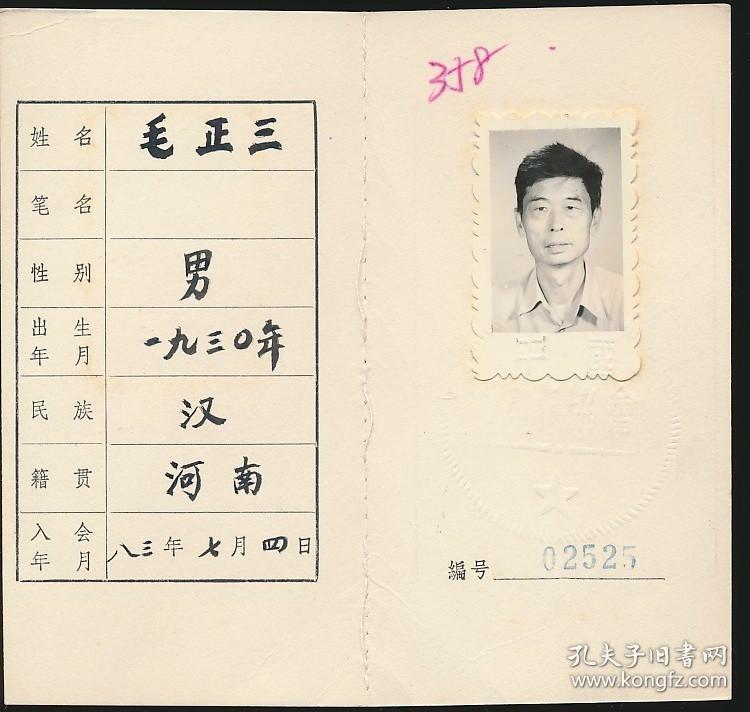 姓名 毛正三
笔名
性别 男
出生年月 一九三〇年
民族 汉
籍贯 河南
入会年月 八三年七月四日
358
編号 02525
孔夫子旧书网
www.kongfz.com